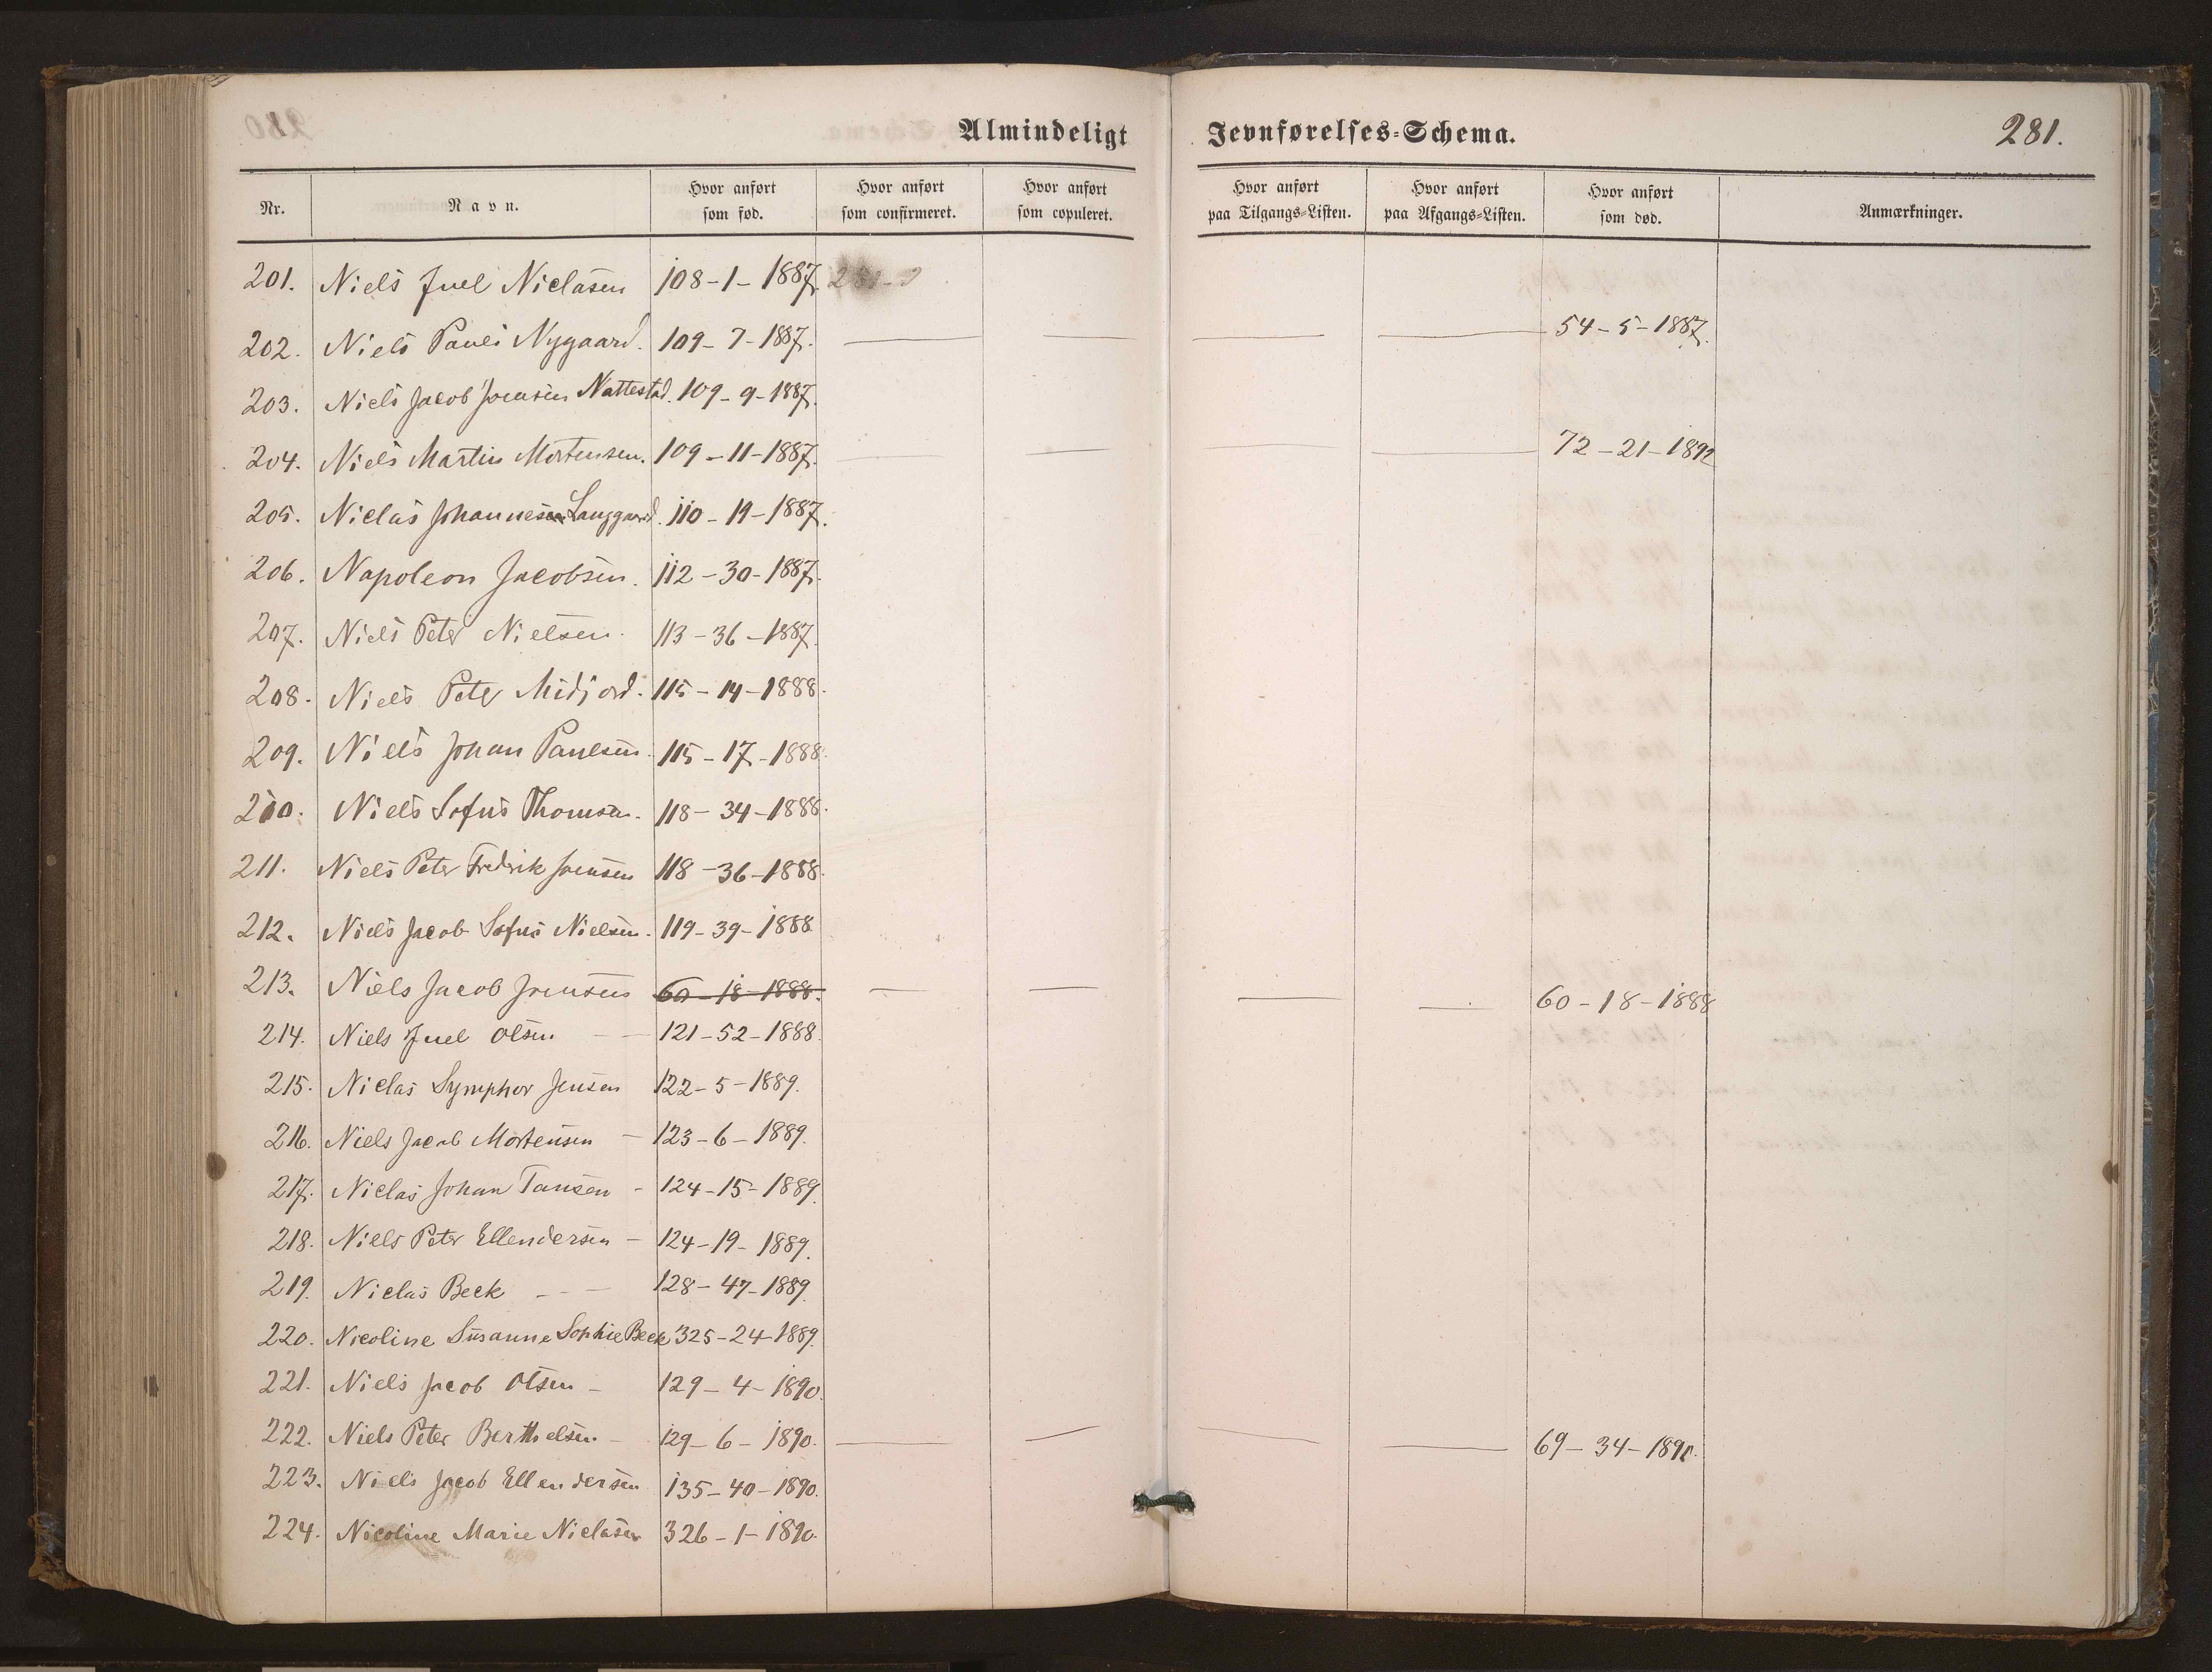 Almindeligt Jevnførelses-Schema. 281.
Nr. Navn. Hvor anført som fød. Hvor anført som confirmeret. Hvor anført som copuleret. Hvor anført paa Tilgangs-Listen. Hvor anført paa Afgangs-Listen. Hvor anført som død. Anmærkninger.
201. Niels Juel Niclasen 108-1-1887.
202. Niels Pauli Nygaard. 109-7-1887. — — — — 54-5-1887.
203. Niels Jacob Joensen Nattestad. 109-9-1887.
204. Niels Martin Mortensen. 109-11-1887. — — — — 72-21-1892
205. Niclas Johannesen Langgaard. 110-19-1887.
206. Napoleon Jacobsen. 112-30-1887.
207. Niels Peter Nielsen. 113-36-1887.
208. Niels Peter Midjord. 115-14-1888.
209. Niels Johan Paulsen. 115-17-1888.
210. Niels Sofus Thomsen. 118-34-1888.
211. Niels Peter Fredrik Joensen 118-36-1888.
212. Niels Jacob Sofus Nielsen. 119-39-1888
213. Niels Jacob Joensen 60-18-1888. — — — — 60-18-1888
214. Niels Juel Olsen — — 121-52-1888.
215. Niclas Symphor Jensen 122-5-1889.
216. Niels Jacob Mortensen — 123-6-1889.
217. Niclas Johan Tausen - 124-15-1889.
218. Niels Peter Ellendersen — 124-19-1889.
219. Niclas Beck - - — 128-47-1889.
220. Nicoline Susanne Sophie Beck 325-24-1889.
221. Niels Jacob Olsen — 129-4-1890.
222. Niels Peter Berthelsen — 129-6-1890. — — — — 69-34-1891.
223. Niels Jacob Ellendersen 135-40-1890.
224. Nicoline Marie Niclasen 326-1-1890.